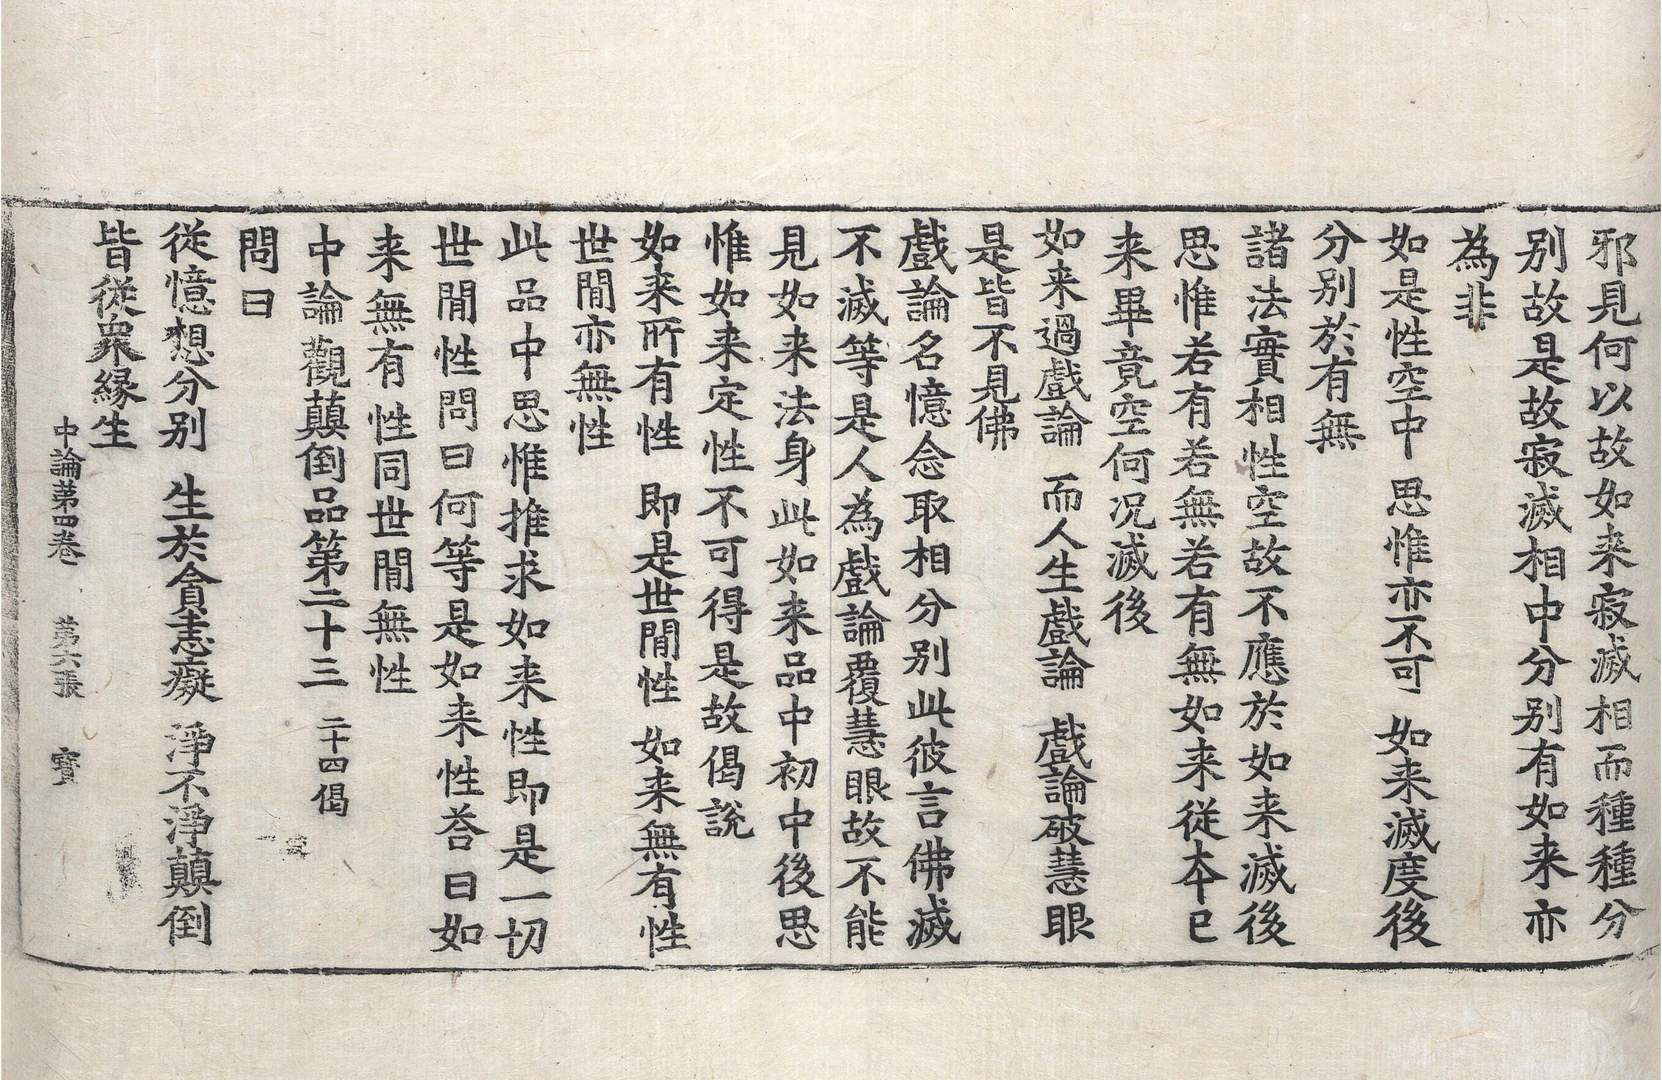 邪見何以故如来寂滅相而種種分
别故是故寂滅相中分别有如来亦
為非
如是性空中 思惟亦不可 如来滅度後
分别於有無
諸法實相性空故不應於如来滅後
思惟若有若無若有無如来從夲已
来畢竟空何況滅後
如来過戲論 而人生戲論 戲論破慧眼
是皆不見佛
戲論名憶念取相分别此彼言佛滅
不滅等是人為戲論覆慧眼故不能
見如来法身此如来品中初中後思
惟如来定性不可得是故偈説
如来所有性 即是世間性 如来無有性
世間亦無性
此品中思惟推求如来性即是一切
世間性問曰何等是如来性荅曰如
来無有性同世間無性
中論觀顛倒品第二十三 二十四偈
問曰
從憶想分别 生於貪恚癡 淨不淨顛倒
皆從衆緣生
中論第四卷 第六張 寶